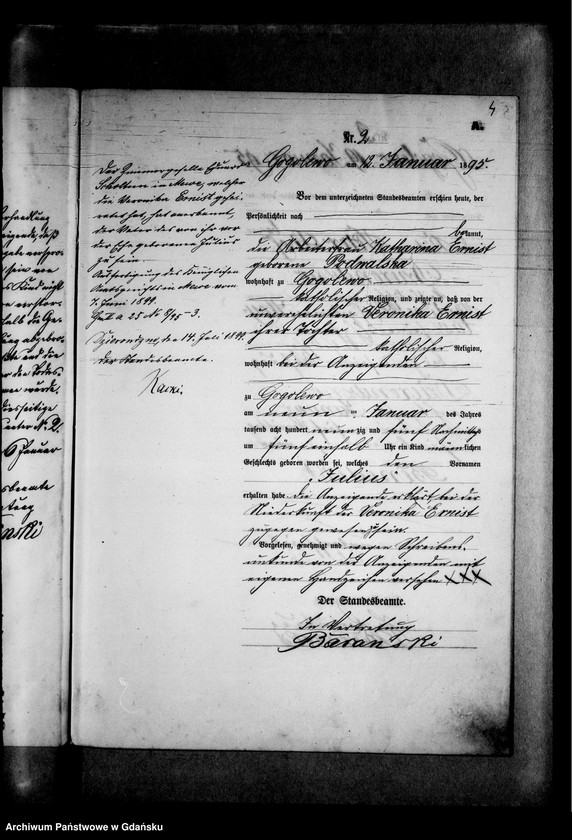 4
A.
Nr. 2
Gogolewo am 12 Januar 1895
Vor dem unterzeichneten Standesbeamten erschien heute, der
Persönlichkeit nach
bekannt,
die Arbeiterfrau Katharina Ernist
geborene Podwalska
wohnhaft zu Gogolewo
katholischer Religion, und zeigte an, daß von der
unverehelichten Veronika Ernist
ihrer Tochter
katholischer Religion,
wohnhaft bei der Anzeigenden
zu Gogolewo
am neun ten Januar des Jahres
tausend acht hundert neunzig und fünf Nachmittags
um fünf einhalb Uhr ein Kind männlichen
Geschlechts geboren worden sei, welches den Vornamen
"Julius"
erhalten habe. Die Anzeigende erklärt bei der
Niederkunft der Veronika Ernist
zugegen gewesen zu sein.
Vorgelesen, genehmigt und wegen Schreibens-
unkunde von der Anzeigenden mit
eigenem Handzeichen versehen XXX
Der Standesbeamte.
In Vertretung
Baranski
Der Zimmergeselle
in Mewe, welcher
die Veronika Ernist gehei-
rathet hat, hat anerkannt,
der Vater des von ihr vor
der Ehe geborenen Julius
zu sein.
Königlichen
Amtsgerichts in Mewe vom
7. Juni 1899.
den 14. Juli 1899.
Der Standesbeamte.
Archiwum Państwowe w Gdańsku